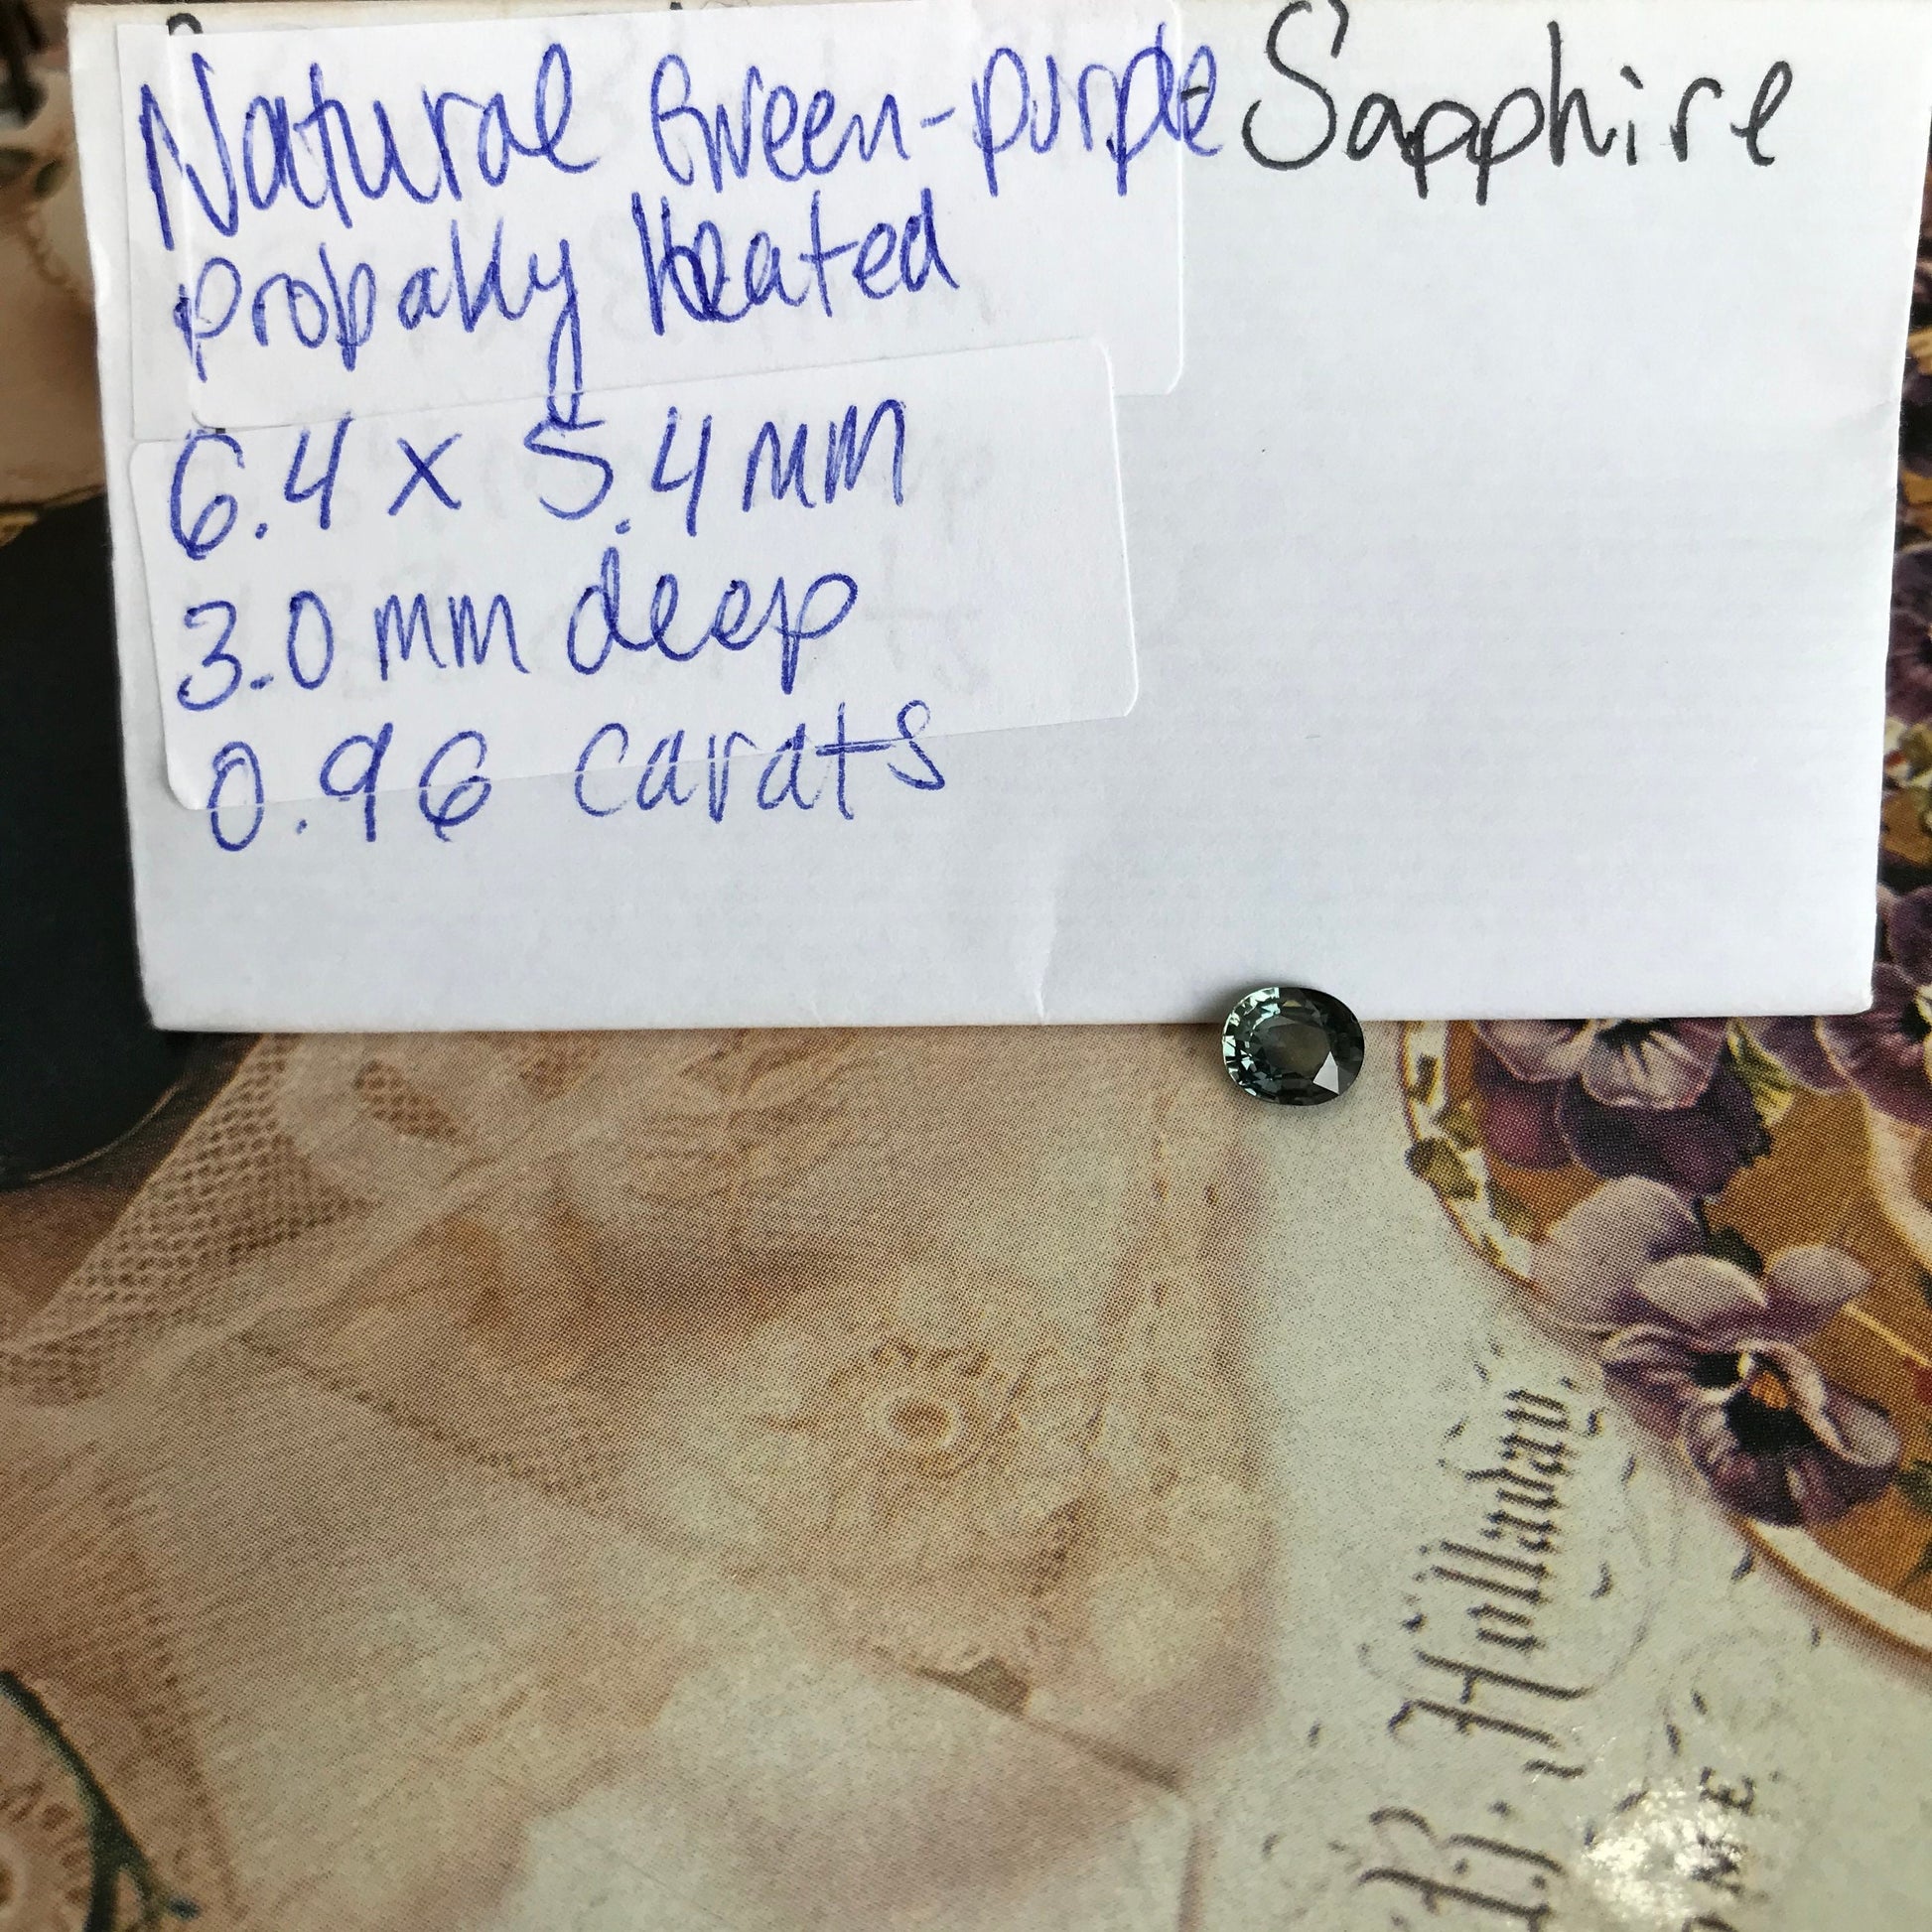 Natural Green-purple Sapphire
Probally Heated
6.4 x 5.4 mm
3.0 mm deep
0.96 carats
B. Holladay.